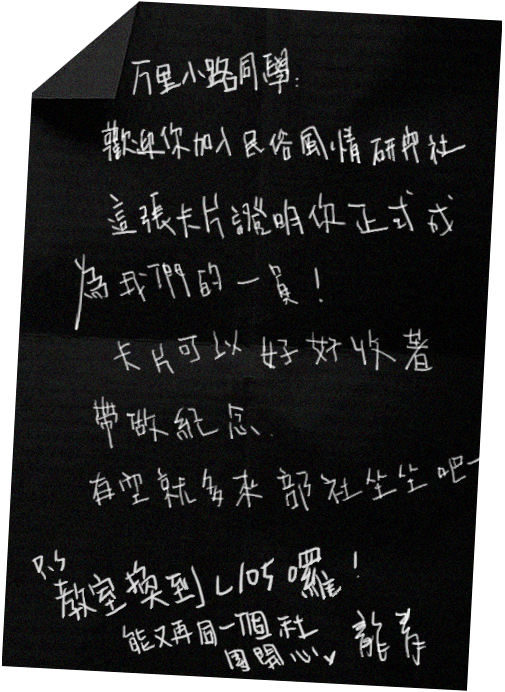 万里小路同學:
歡迎你加入民俗風情研究社
這張卡片證明你正式成
為我們的一員！
卡片可以好好收著
帶做紀念.
有空就多來部社坐坐吧~
P.S
教室換到L105囉！
能又再同一個社
團開心
龍青